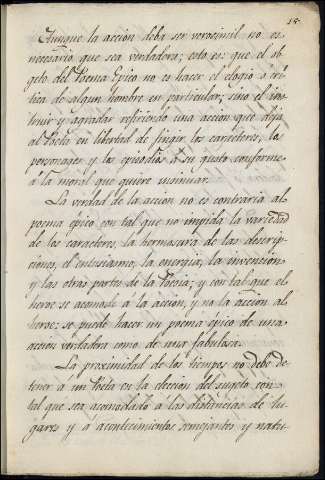 18.
Aunque la accion deba ser verosimil no es
necesario que sea verdadera; esto es: que el ob-
geto del Poema Epico no es hacer el elogio o cri-
tica de algun hombre en particular; sino el ins-
truir y agradar refiriendo una accion que deja
al Poeta en libertad de fingir los caractères, los
personages y los episodios à su gusto conforme
à la moral que quiere insinuar.
La verdad de la accion no es contraria al
poema èpico con tal que no impida la variedad
de los caractères, la hermosura de las descrip-
ciones, el entusiasmo, la energia, la invencion
y las otras partes de la Poesia; y con tal que el
heroe se acomode à la acciòn, y no la accion al
heroe: se puede hacer un poema èpico de una
acciòn verdadera como de una fabulosa.
La proximidad de los tiempos no debe de-
tener à un Poeta en la eleccion del sugeto con
tal que sea acomodado à las distancias de lu-
gares y à acontecimientos semejantes y natu-